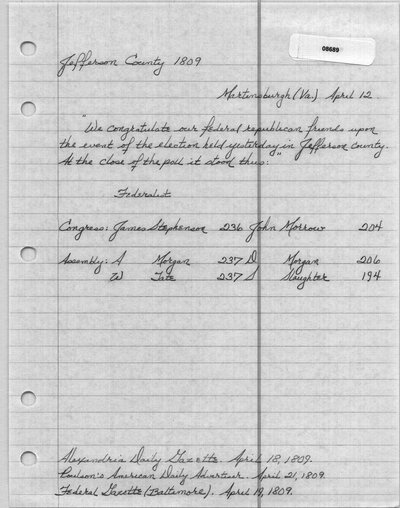 08689
Jefferson County 1809
Martinsburgh (Va.) April 12.
"We congratulate our federal republican friends upon
the event of the election held yesterday in Jefferson county.
At the close of the poll it stood thus:"
Federalist
Congress: James Stephenson 236 John Morrow 204
Assembly: A Morgan 237 D Morgan 206
W Tate 237 S Slaughter 194
Alexandria Daily Gazette. April 18, 1809.
Poulson's American Daily Advertiser. April 21, 1809.
Federal Gazette (Baltimore). April 19, 1809.